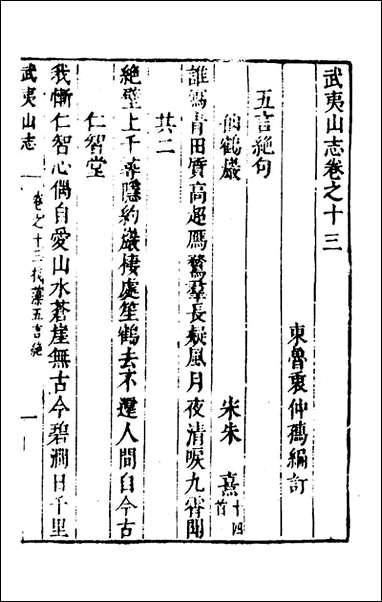 武夷山志卷之十三
東魯衷仲孺編訂
五言絶句
仙鶴巖 宋朱 熹十四首
誰寫青田質高超鴈鶩羣長疑風月夜清唳九霄聞
其二
絶壁上千尋隱約巖棲處笙鶴去不還人間自今古
仁智堂
我慚仁智心偶自愛山水蒼崖無古今碧澗日千里
武夷山志 卷之十三 藻五言絶 一